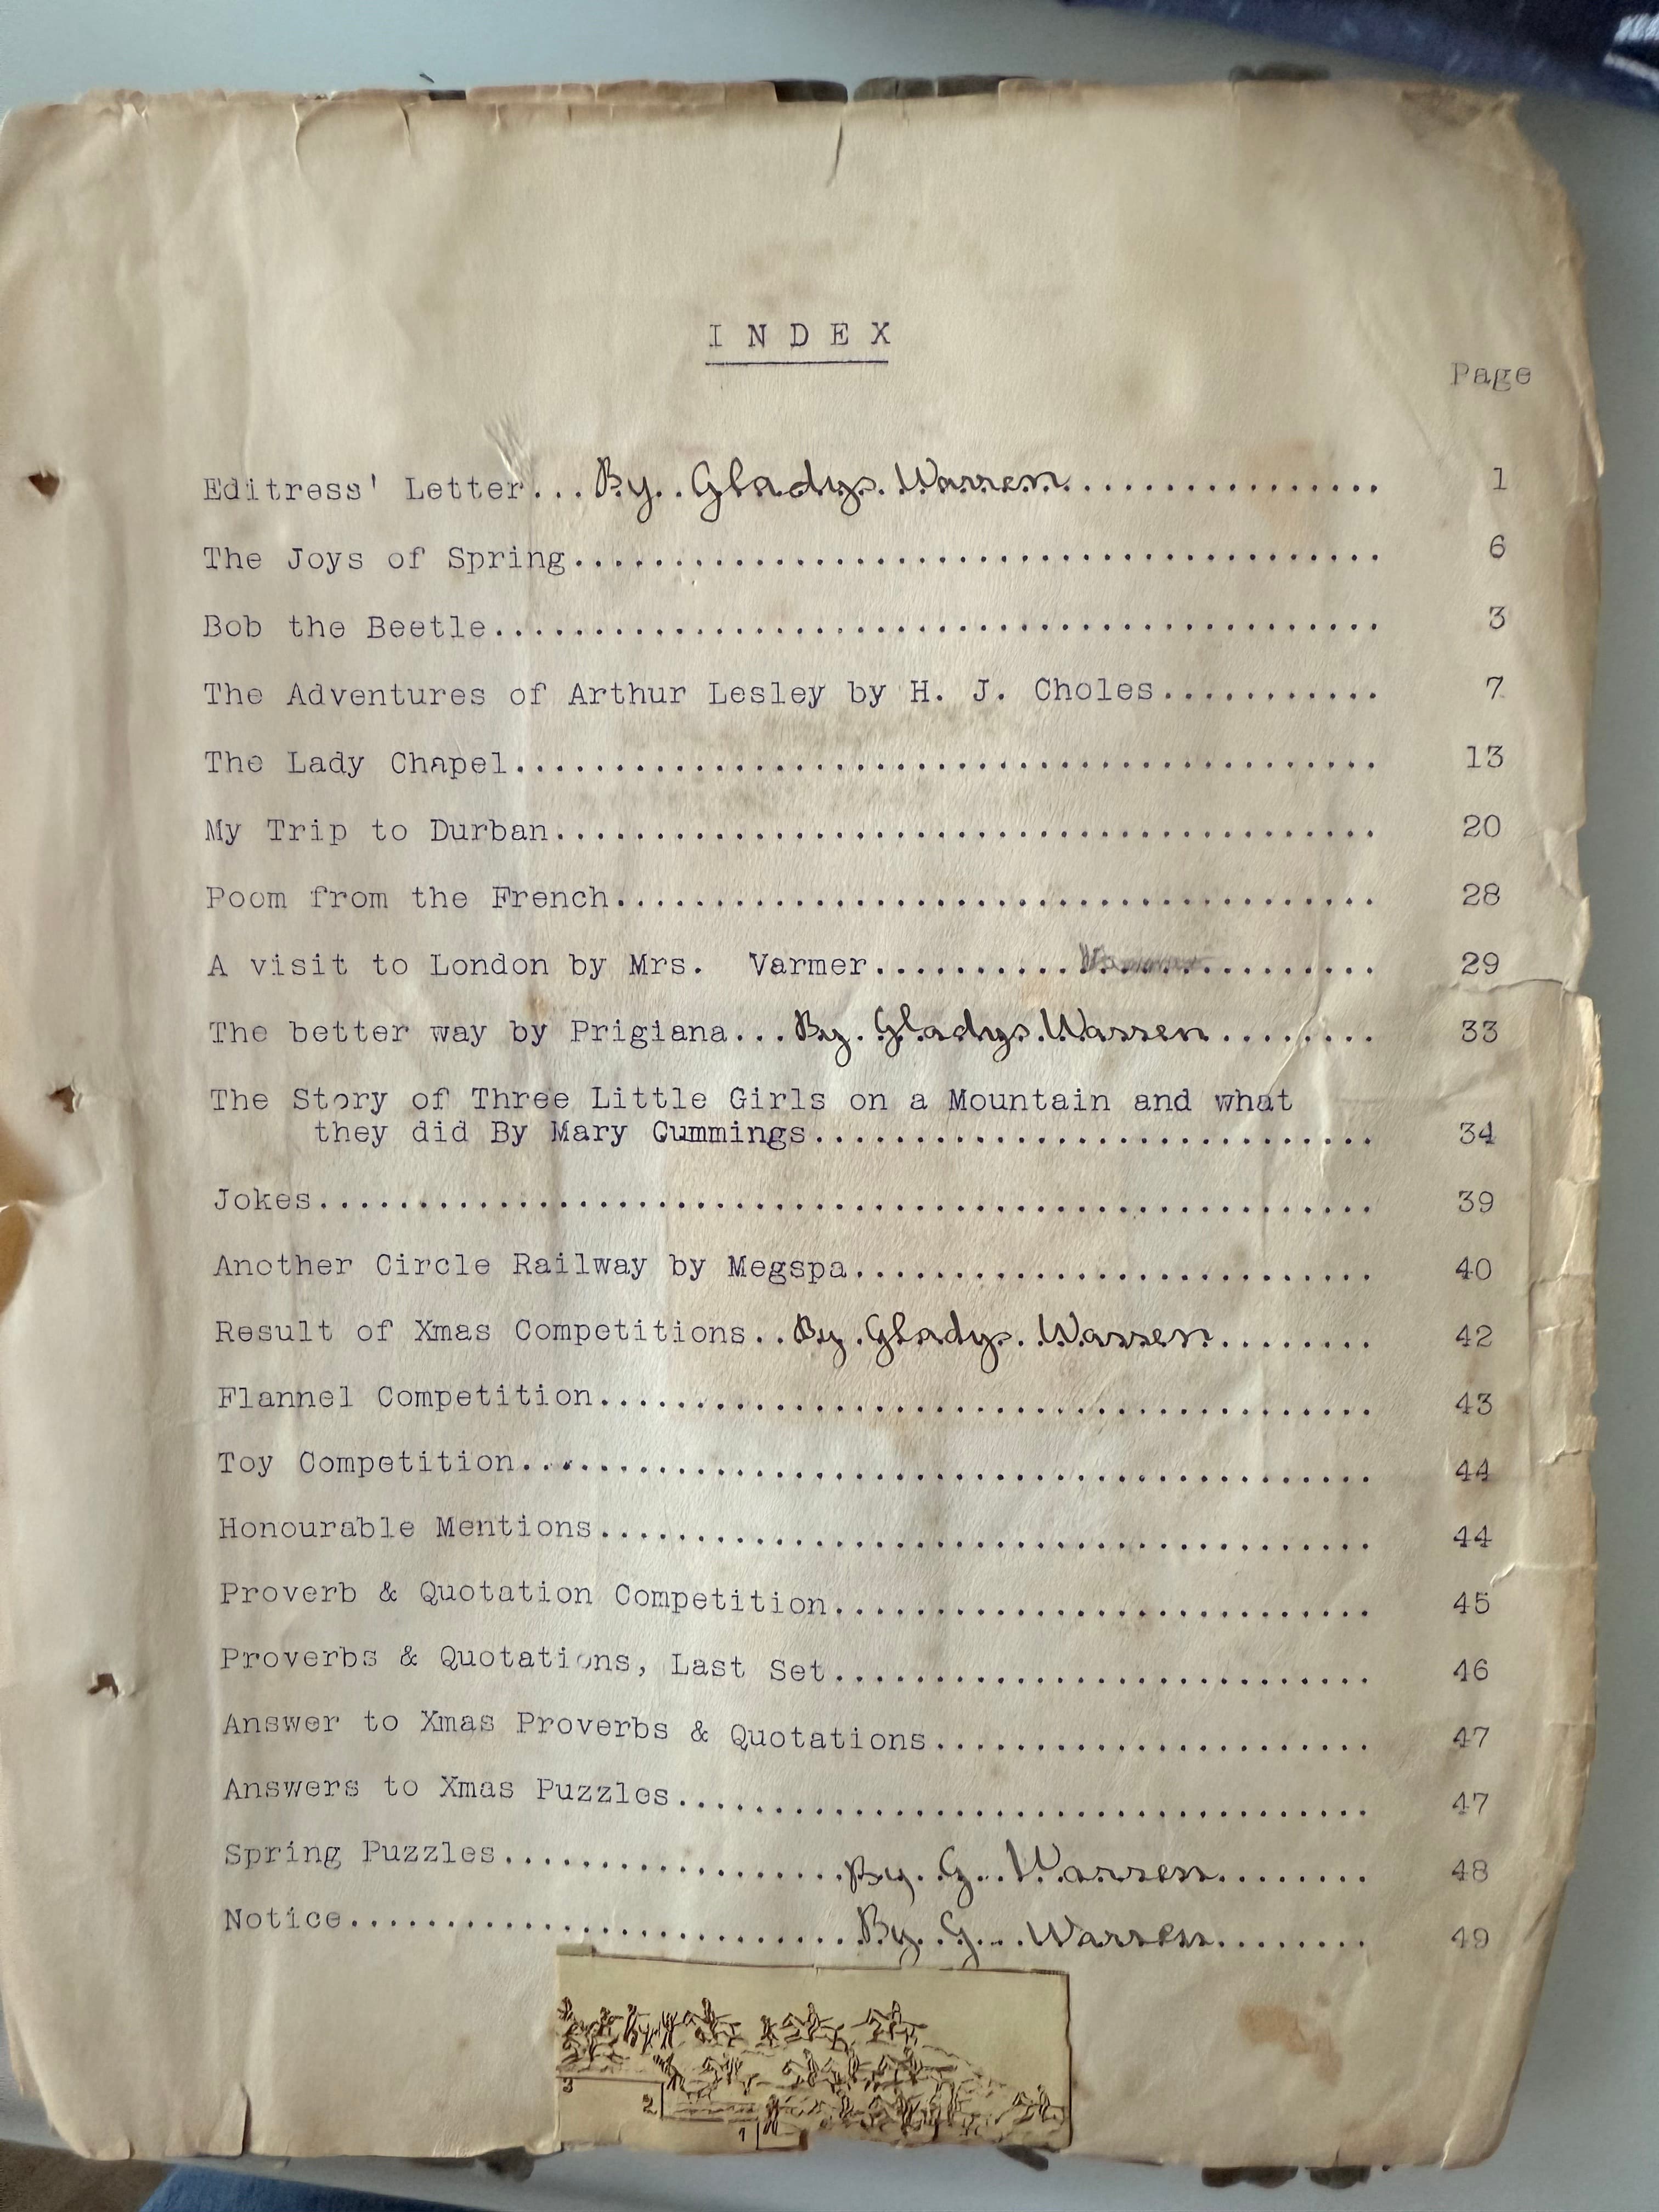 I N D E X
Page
Editress' Letter...By..Gladys.Warren................ 1
The Joys of Spring........................................ 6
Bob the Beetle............................................ 3
The Adventures of Arthur Lesley by H. J. Choles........... 7
The Lady Chapel........................................... 13
My Trip to Durban......................................... 20
Poom from the French...................................... 28
A visit to London by Mrs. Varmer......................... 29
The better way by Prigiana...By.Gladys.Warren........ 33
The Story of Three Little Girls on a Mountain and what
they did By Mary Cummings............................ 34
Jokes..................................................... 39
Another Circle Railway by Megspa.......................... 40
Result of Xmas Competitions..By.Gladys.Warren........ 42
Flannel Competition....................................... 43
Toy Competition........................................... 44
Honourable Mentions....................................... 44
Proverb & Quotation Competition........................... 45
Proverbs & Quotations, Last Set........................... 46
Answer to Xmas Proverbs & Quotations...................... 47
Answers to Xmas Puzzles................................... 47
Spring Puzzles.................By.G..Warren........ 48
Notice..........................By.G...Warren........ 49
3
2
1